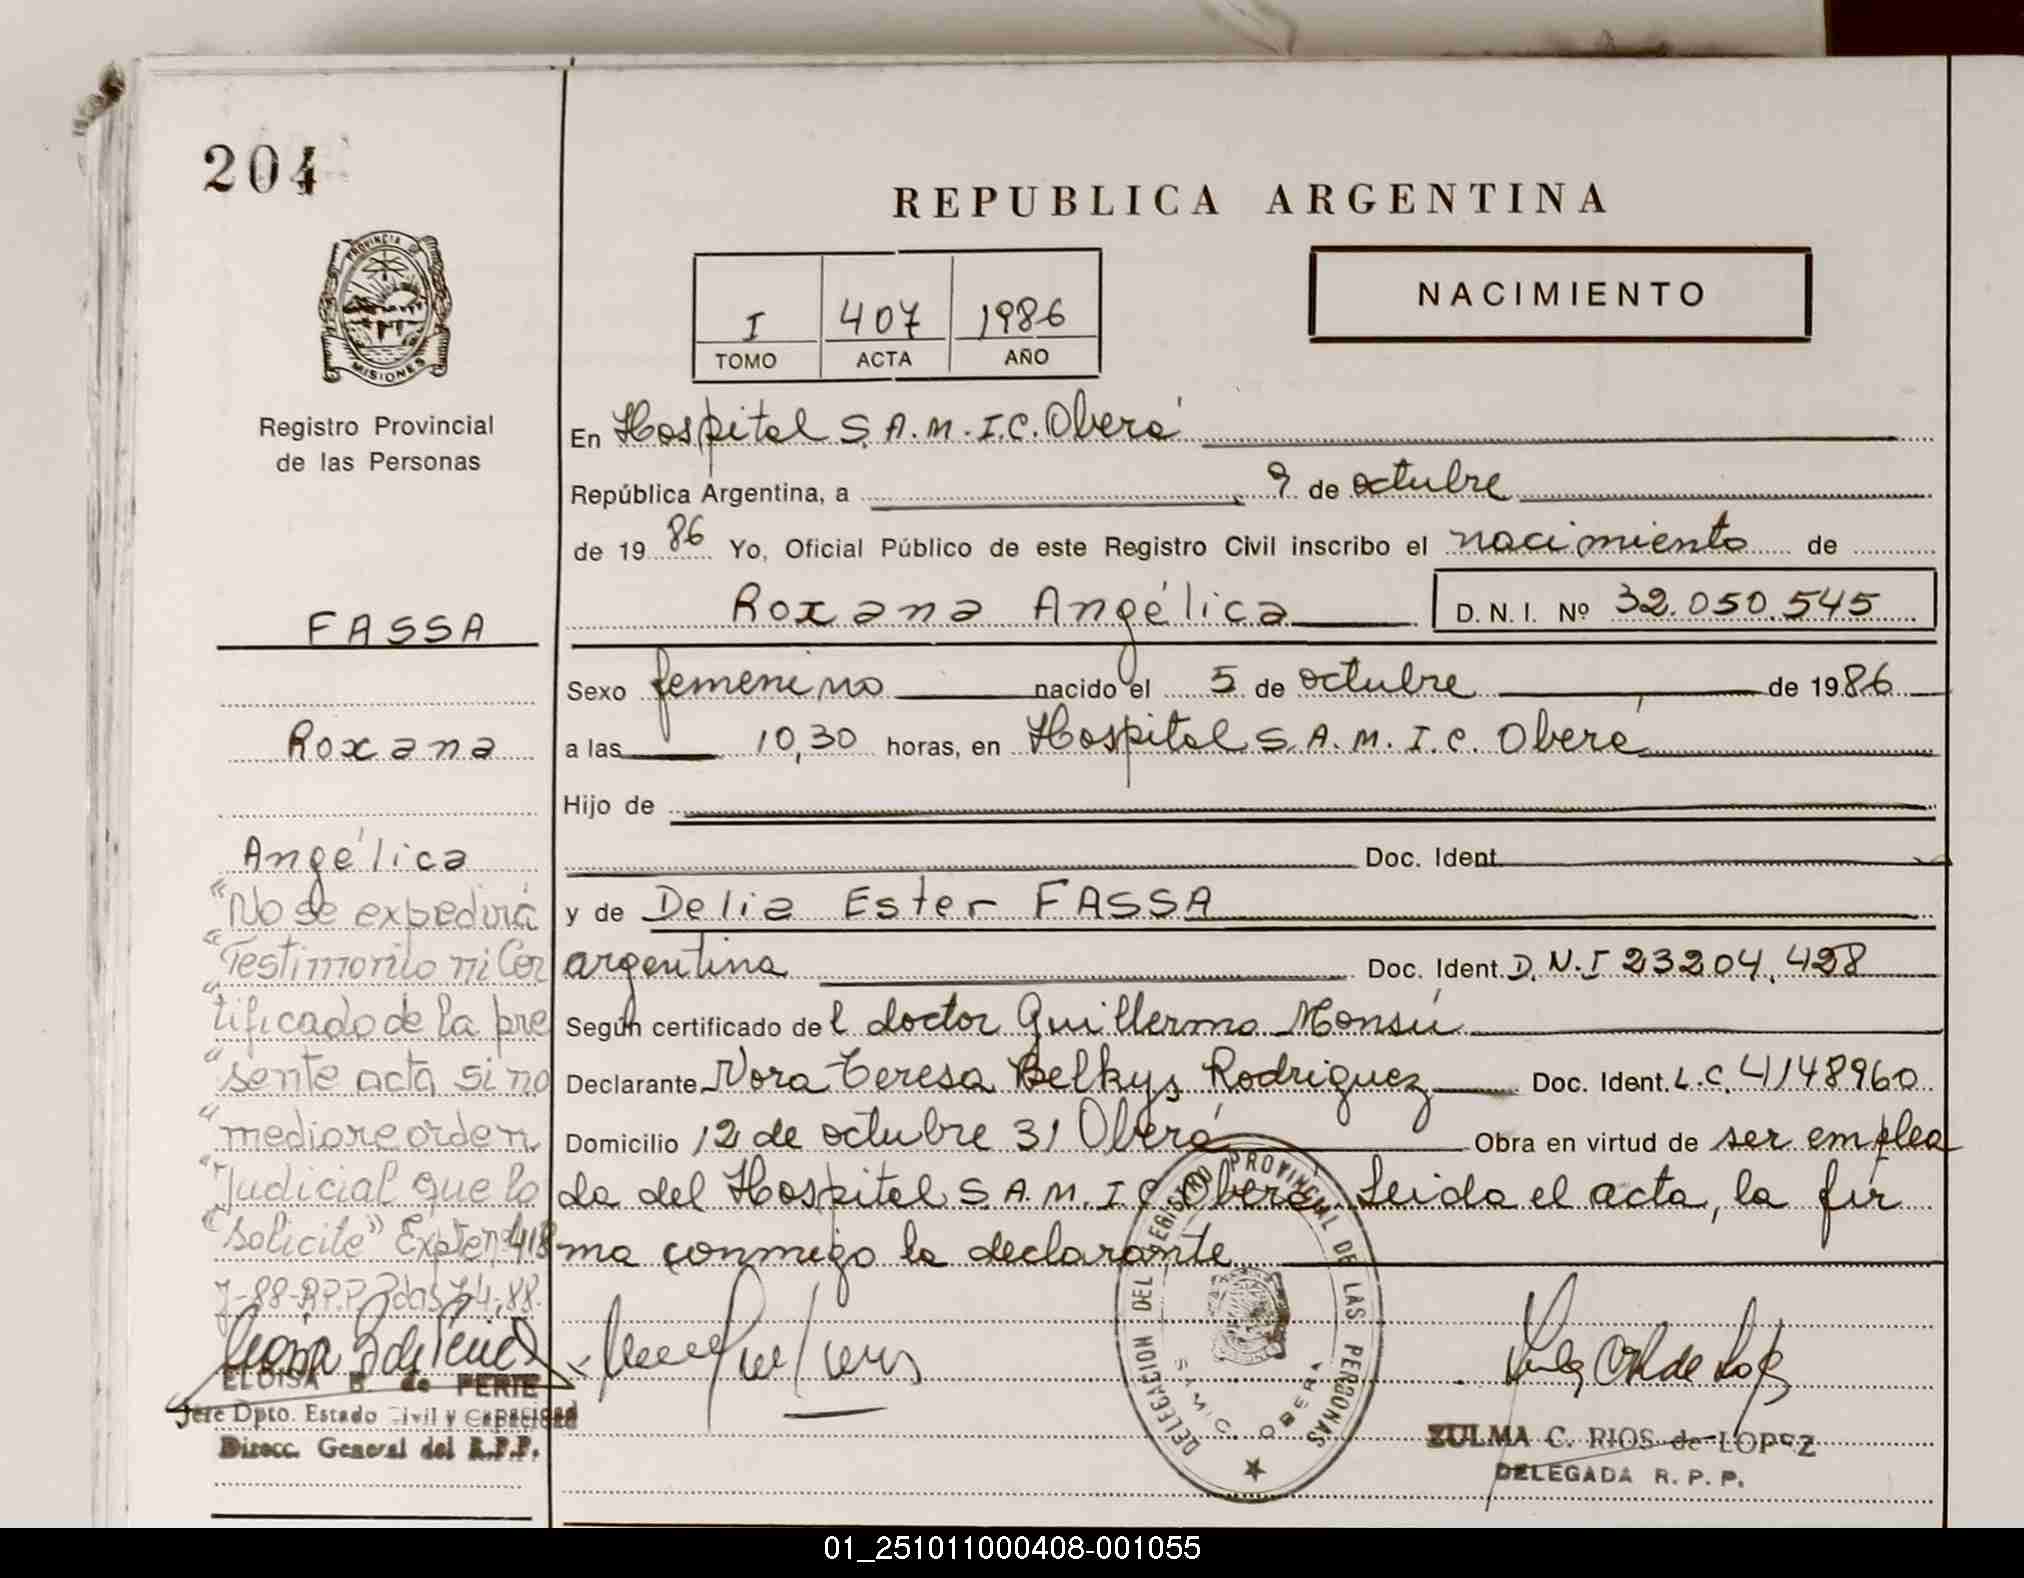 204
REPUBLICA ARGENTINA
PROVINCIA DE
MISIONES
I 407 1986
TOMO ACTA AÑO
NACIMIENTO
Registro Provincial
de las Personas
En Hospital S.A.M.I.C. Oberá
República Argentina, a 9 de octubre
de 1986 Yo, Oficial Público de este Registro Civil inscribo el nacimiento de
Roxana Angélica D.N.I. Nº 32.050.545
FASSA
Roxana
Angélica
Sexo femenino nacido el 5 de octubre de 1986
a las 10,30 horas, en Hospital S.A.M.I.C. Oberá
Hijo de
Doc. Ident.
y de Delia Ester FASSA
argentina Doc. Ident. D.N.I 23204.428
Según certificado del doctor Guillermo Monsú
Declarante Nora Teresa Belkys Rodriguez Doc. Ident. L.C. 4148960
Domicilio 12 de octubre 31 Oberá Obra en virtud de ser emplea
da del Hospital S.A.M.I.C Oberá. Leida el acta, la fir
ma conmigo la declarante
"No se expedirá
"Testimonio ni Cer
"tificado de la pre
"sente acta si no
"mediare orden
"Judicial que lo
"solicite" Expte nº 418
J-88-R.P.P.
ELOISA B. de PERIE
Jefe Dpto. Estado Civil y Capacidad
Direcc. General del R.P.P.
DELEGACION DEL REGISTRO PROVINCIAL DE LAS PERSONAS
S.A.M.I.C. OBERA
ZULMA C. RIOS de LOPEZ
DELEGADA R.P.P.
01_251011000408-001055